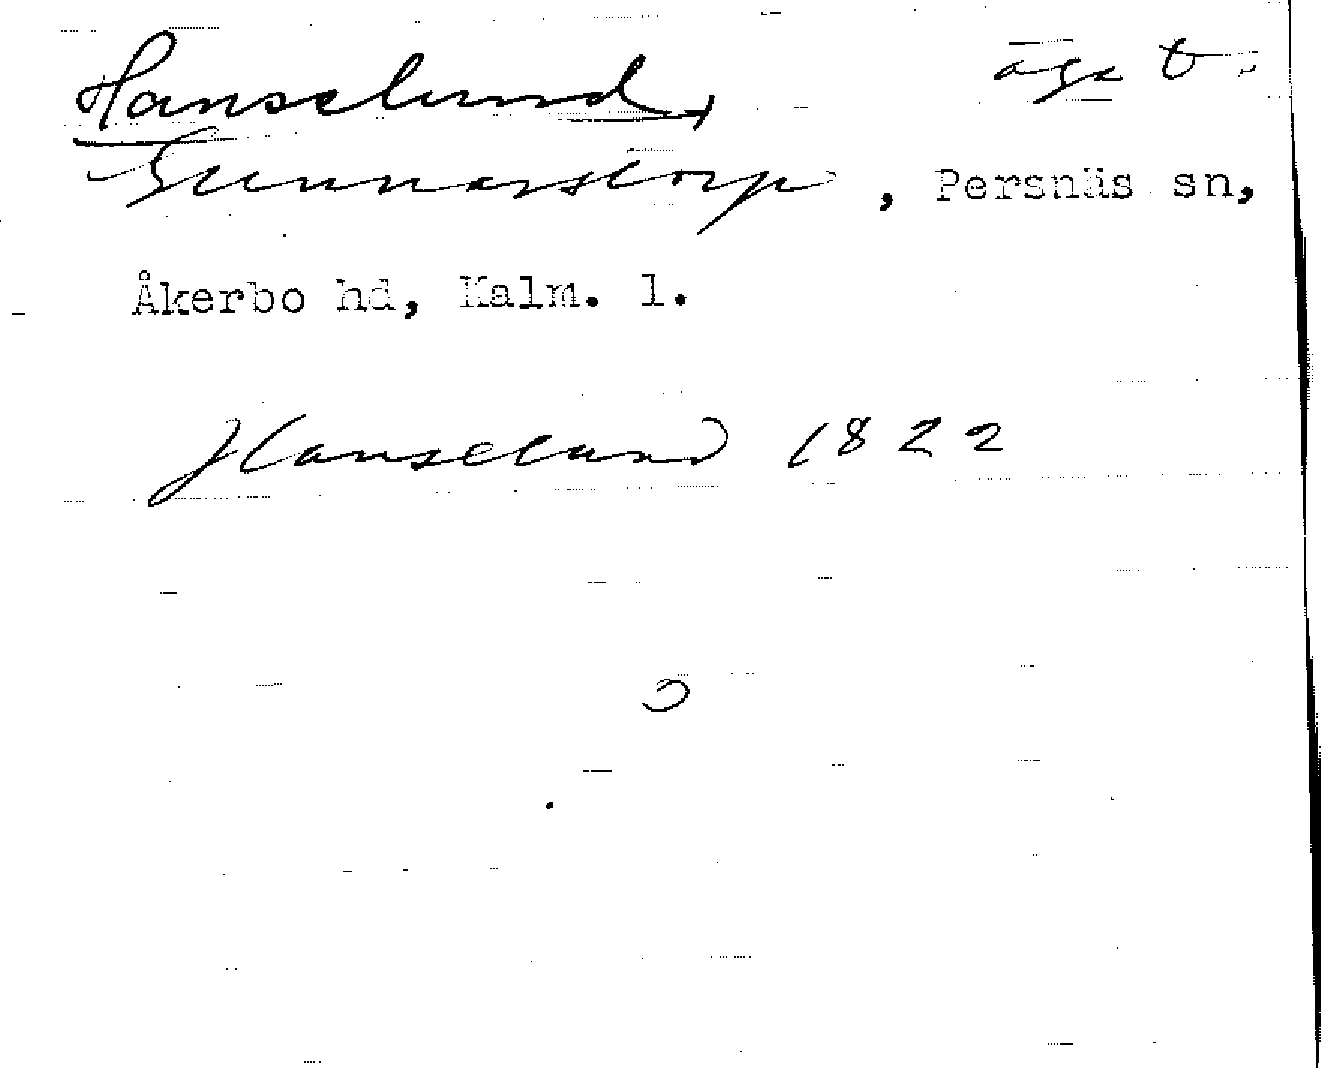 Hanselund, äga t.
Gunnarstorp, Persnäs sn,
Åkerbo hd, Kalm. l.
Hanselund 1822